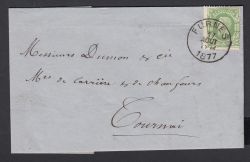 FURNES
1877
Messieurs Dumon & cie
Mes de carrière & de chaufours
Tournai